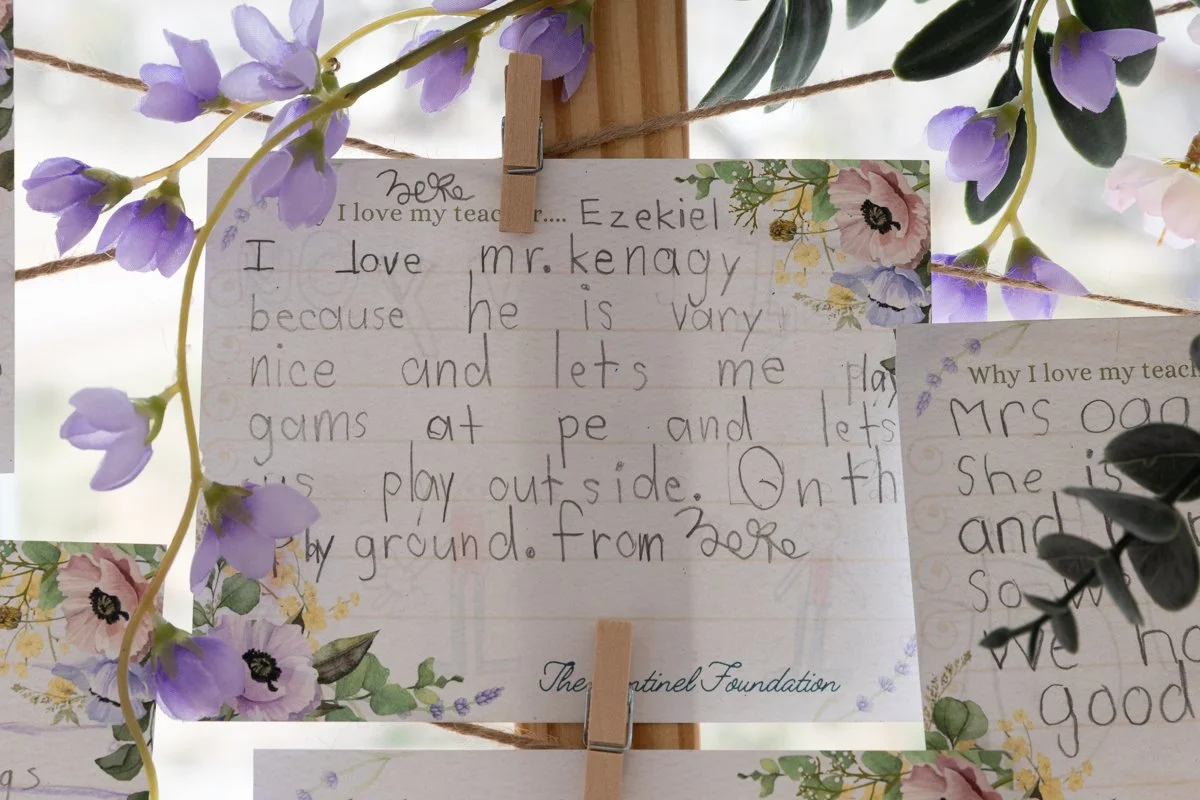 Zeke
I love my teacher.... Ezekiel
I love mr. kenagy
because he is vary
nice and lets me play
gams at pe and lets
us play outside. On th
ground. from Zeke
The Sentinel Foundation
Why I love my teach
Mrs
She is
and
So
We
good
gs